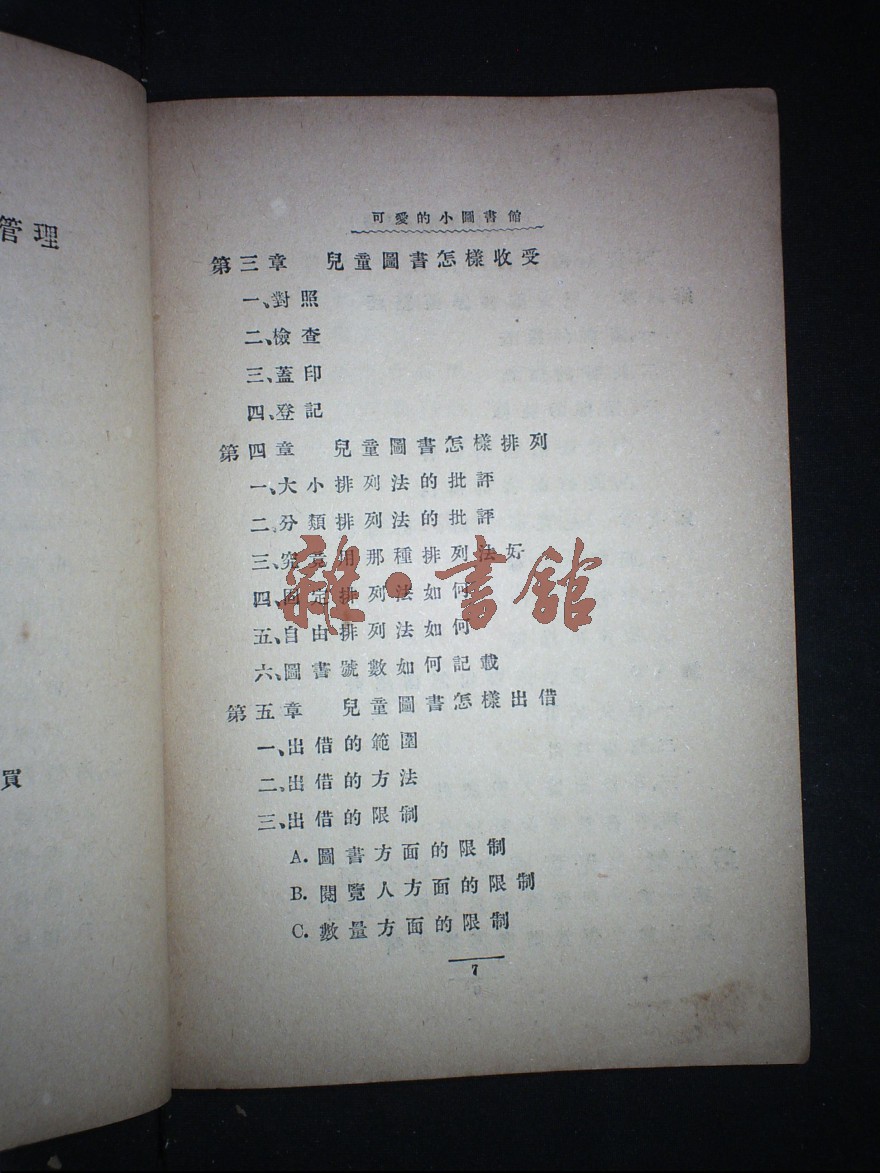 管理
買
可愛的小圖書館
第三章 兒童圖書怎樣收受
一、對照
二、檢查
三、蓋印
四、登記
第四章 兒童圖書怎樣排列
一、大小排列法的批評
二、分類排列法的批評
三、究竟用那種排列法好
四、固定排列法如何
五、自由排列法如何
六、圖書號數如何記載
第五章 兒童圖書怎樣出借
一、出借的範圍
二、出借的方法
三、出借的限制
A. 圖書方面的限制
B. 閱覽人方面的限制
C. 數量方面的限制
7
雜·書館